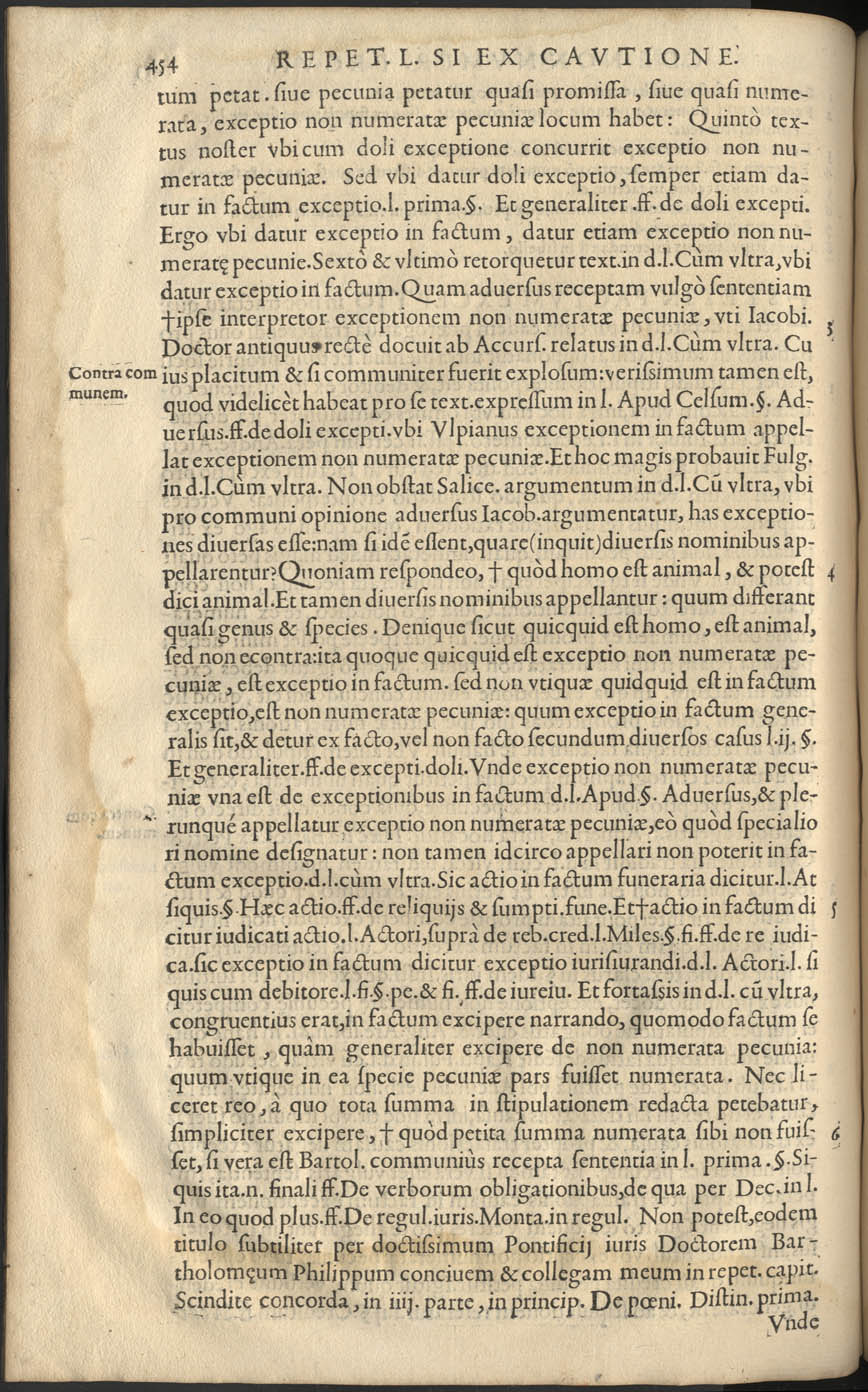 454 REPET. L. SI EX CAVTIONE.
tum petat. ſiue pecunia petatur quaſi promiſſa, ſiue quaſi nume-
rata, exceptio non numeratæ pecuniæ locum habet: Quintò tex-
tus noſter vbi cum doli exceptione concurrit exceptio non nu-
meratæ pecuniæ. Sed vbi datur doli exceptio, ſemper etiam da-
tur in factum exceptio. l. prima. §. Et generaliter. ff. de doli excepti.
Ergo vbi datur exceptio in factum, datur etiam exceptio non nu-
meratę pecunie. Sextò & vltimò retorquetur text. in d. l. Cùm vltra, vbi
datur exceptio in factum. Quam aduerſus receptam vulgò ſententiam
†ipſe interpretor exceptionem non numeratæ pecuniæ, vti Iacobi. 3
Doctor antiquus rectè docuit ab Accurſ. relatus in d. l. Cùm vltra. Cu
Contra com
munem.
ius placitum & ſi communiter fuerit exploſum: veriſsimum tamen eſt,
quod videlicèt habeat pro ſe text. expreſſum in l. Apud Celſum. §. Ad-
uerſus. ff. de doli excepti. vbi Vlpianus exceptionem in factum appel-
lat exceptionem non numeratæ pecuniæ. Et hoc magis probauit Fulg.
in d. l. Cùm vltra. Non obſtat Salice. argumentum in d. l. Cũ vltra, vbi
pro communi opinione aduerſus Iacob. argumentatur, has exceptio-
nes diuerſas eſſe: nam ſi idẽ eſſent, quare (inquit) diuerſis nominibus ap-
pellarentur? Quoniam reſpondeo, † quòd homo eſt animal, & poteſt 4
dici animal. Et tamen diuerſis nominibus appellantur: quum differant
quaſi genus & ſpecies. Denique ſicut quicquid eſt homo, eſt animal,
ſed non econtra: ita quoque quicquid eſt exceptio non numeratæ pe-
cuniæ, eſt exceptio in factum. ſed non vtiquæ quidquid eſt in factum
exceptio, eſt non numeratæ pecuniæ: quum exceptio in factum gene-
ralis ſit, & detur ex facto, vel non facto ſecundum diuerſos caſus l. ij. §.
Et generaliter. ff. de excepti. doli. Vnde exceptio non numeratæ pecu-
niæ vna eſt de exceptionibus in factum d. l. Apud. §. Aduerſus, & ple-
runqué appellatur exceptio non numeratæ pecuniæ, eò quòd ſpecialio
ri nomine deſignatur: non tamen idcirco appellari non poterit in fa-
ctum exceptio. d. l. cùm vltra. Sic actio in factum funeraria dicitur. l. At
ſiquis. §. Hæc actio. ff. de reliquijs & ſumpti. fune. Et †actio in factum di 5
citur iudicati actio. l. Actori, ſuprà de reb. cred. l. Miles. §. fi. ff. de re iudi-
ca. ſic exceptio in factum dicitur exceptio iuriſiurandi. d. l. Actori. l. ſi
quis cum debitore. l. fi. §. pe. & fi. ff. de iureiu. Et fortaſsis in d. l. cũ vltra,
congruentius erat, in factum excipere narrando, quomodo factum ſe
habuiſſet, quàm generaliter excipere de non numerata pecunia:
quum vtique in ea ſpecie pecuniæ pars fuiſſet numerata. Nec li-
ceret reo, à quo tota ſumma in ſtipulationem redacta petebatur,
ſimpliciter excipere, † quòd petita ſumma numerata ſibi non fuiſ- 6
ſet, ſi vera eſt Bartol. communiùs recepta ſententia in l. prima. §. Si-
quis ita. n. finali ff. De verborum obligationibus, de qua per Dec. in l.
In eo quod plus. ff. De regul. iuris. Monta. in regul. Non poteſt, eodem
titulo ſubtiliter per doctiſsimum Pontificij iuris Doctorem Bar-
tholomęum Philippum conciuem & collegam meum in repet. capit.
Scindite concorda, in iiij. parte, in princip. De pœni. Diſtin. prima.
Vnde